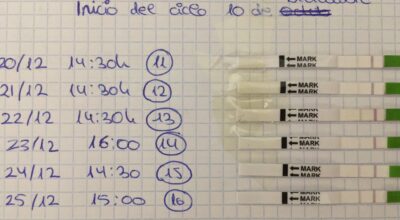 Inicio del ciclo 10 de
20/12 14:30h 11 ← MARK ← MARK
21/12 14:30h 12 ← MARK ← MARK
22/12 14:30h 13 ← MARK ← MARK
23/12 16:00 14 ← MARK ← MARK
24/12 14:30 15 ← MARK ← MARK
25/12 15:00 16 ← MARK ← MARK